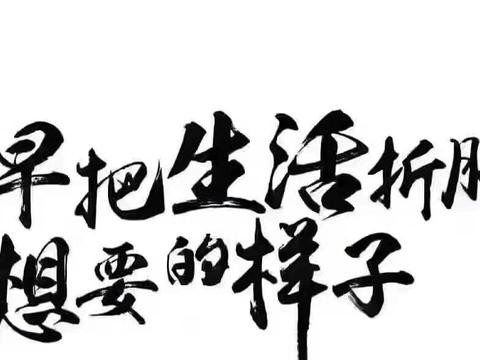 早把生活折
想要的样子